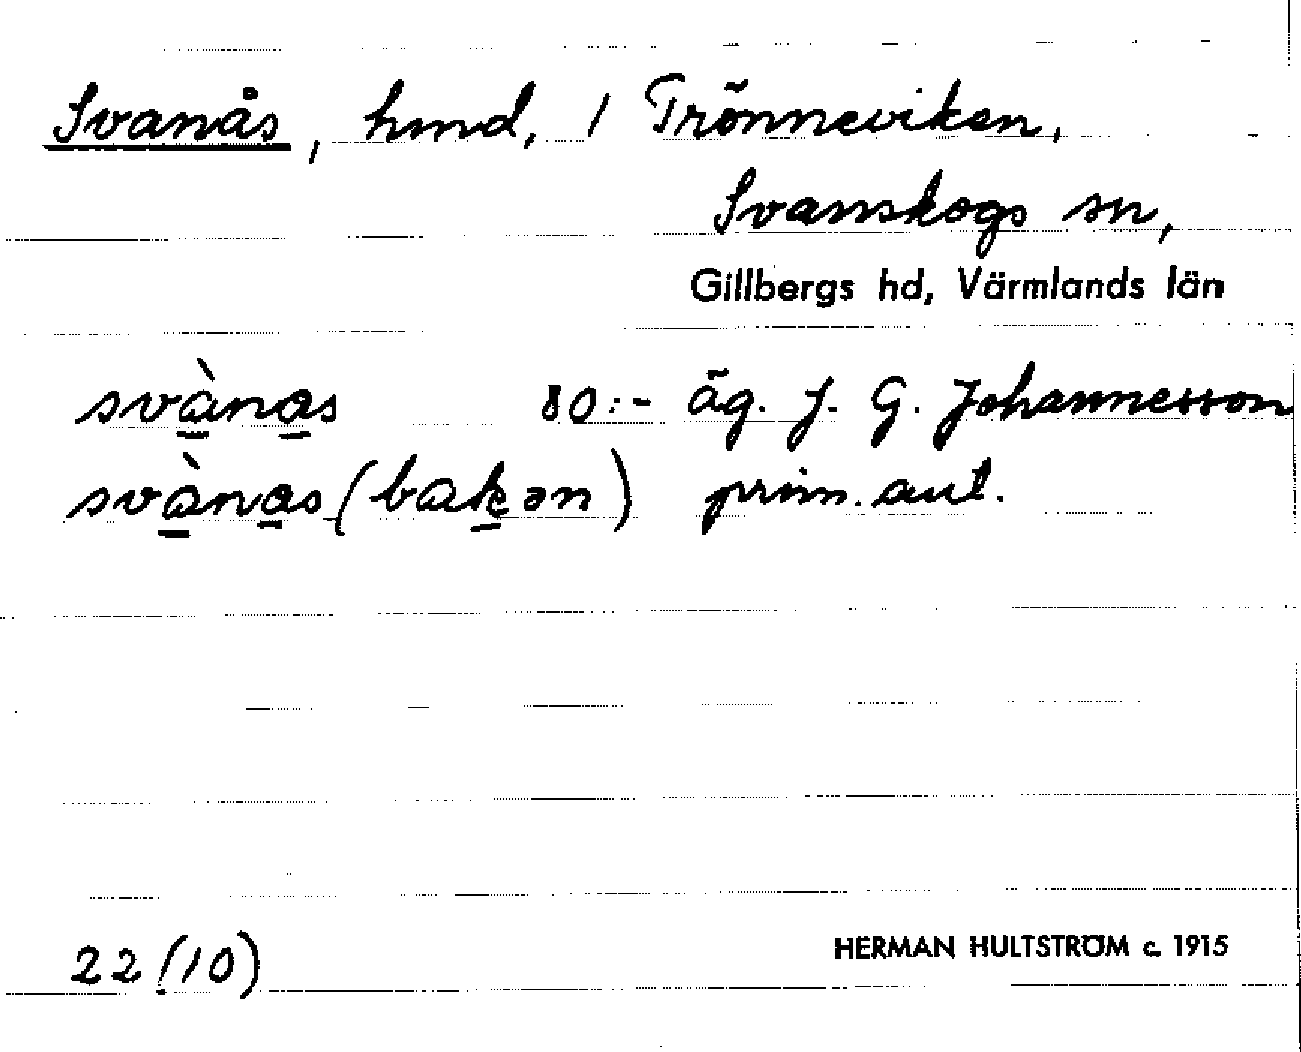 Svanås, hmd, 1 Trönneviken,
Svanskogs sn,
Gillbergs hd, Värmlands län
svànas 80:- äg. J. G. Johannesson
svànas (bakən) prim. aut.
22 (10) HERMAN HULTSTRÖM c. 1915